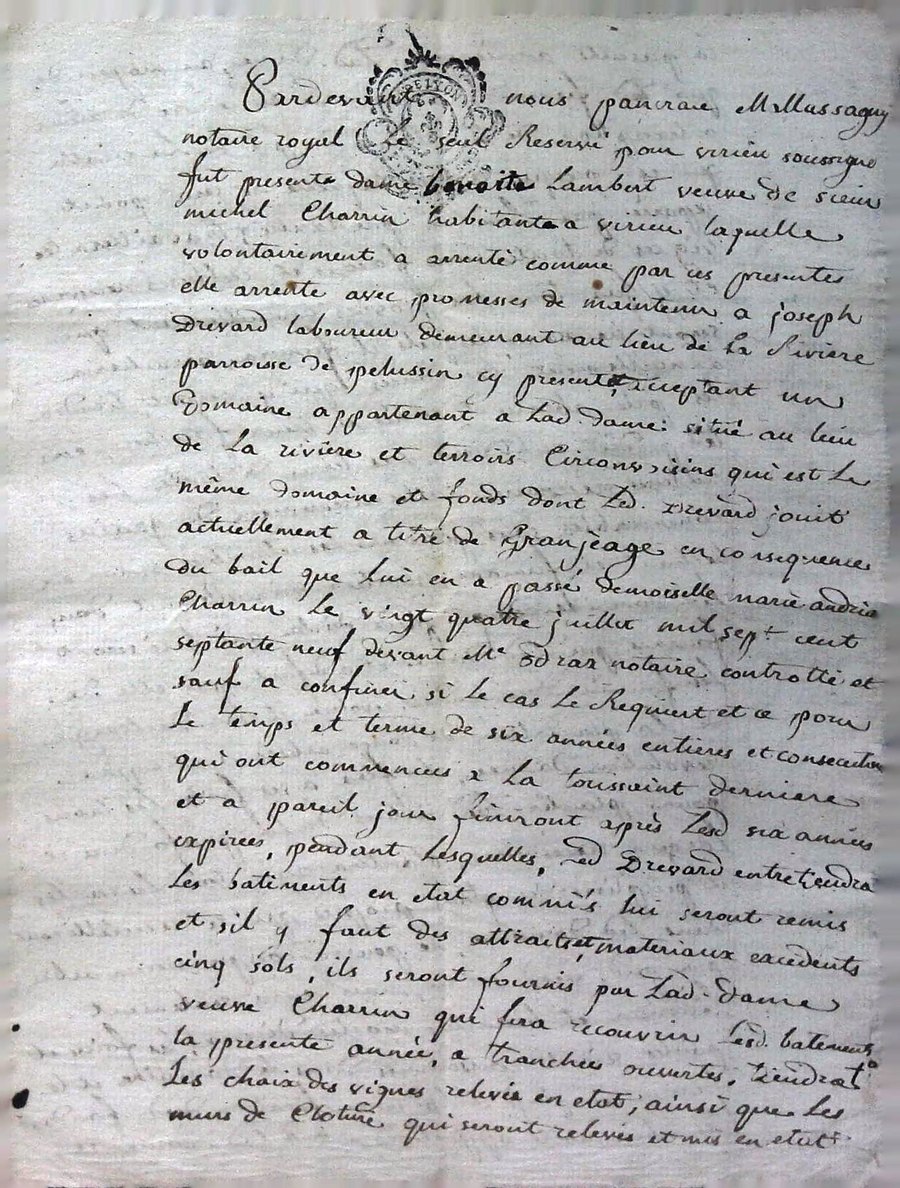 Pardevant nous pancrace M. Mussaguy
notaire royal Le seul Reservé pour virieu soussigne
fut presente dame benoite Lambert veuve de sieur
michel Charrin habitante a virieu laquelle
volontairement a arrenté comme par ces presentes
elle arrente avec promesses de maintenir a joseph
Drevard laboureur demeurant au lieu de La Rivière
parroisse de pelussin cy present et acceptant un
Domaine appartenant a Lad. dame: situé au lieu
de La rivière et terroirs Circonvoisins qui est Le
même domaine et fonds dont Led. Drevard jouit
actuellement a titre de Granjeage en consequence
du bail que lui en a passé demoiselle marie andrée
Charrin Le vingt quatre juillet mil sept cent
septante neuf devant Me notaire controllé et
sauf a confiner si Le cas Le Requiert et ce pour
Le temps et terme de six années entières et consecutives
qui ont commencées a La toussaint derniere
et a pareil jour finiront après Lesd six années
expirees, pendant Lesquelles, Led Drevard entretiendra
Les batiments en etat comm'ils lui seront remis
et s,il y faut des attraits et materiaux excedents
cinq sols, ils seront fournis par Lad. dame
veuve Charrin qui fera recouvrir Lesd. batements
la presente année, a tranchées ouvertes, tiendra
Les chaix des vignes relevés en etat, ainsi que Les
murs de Cloture qui seront relevés et mis en etat